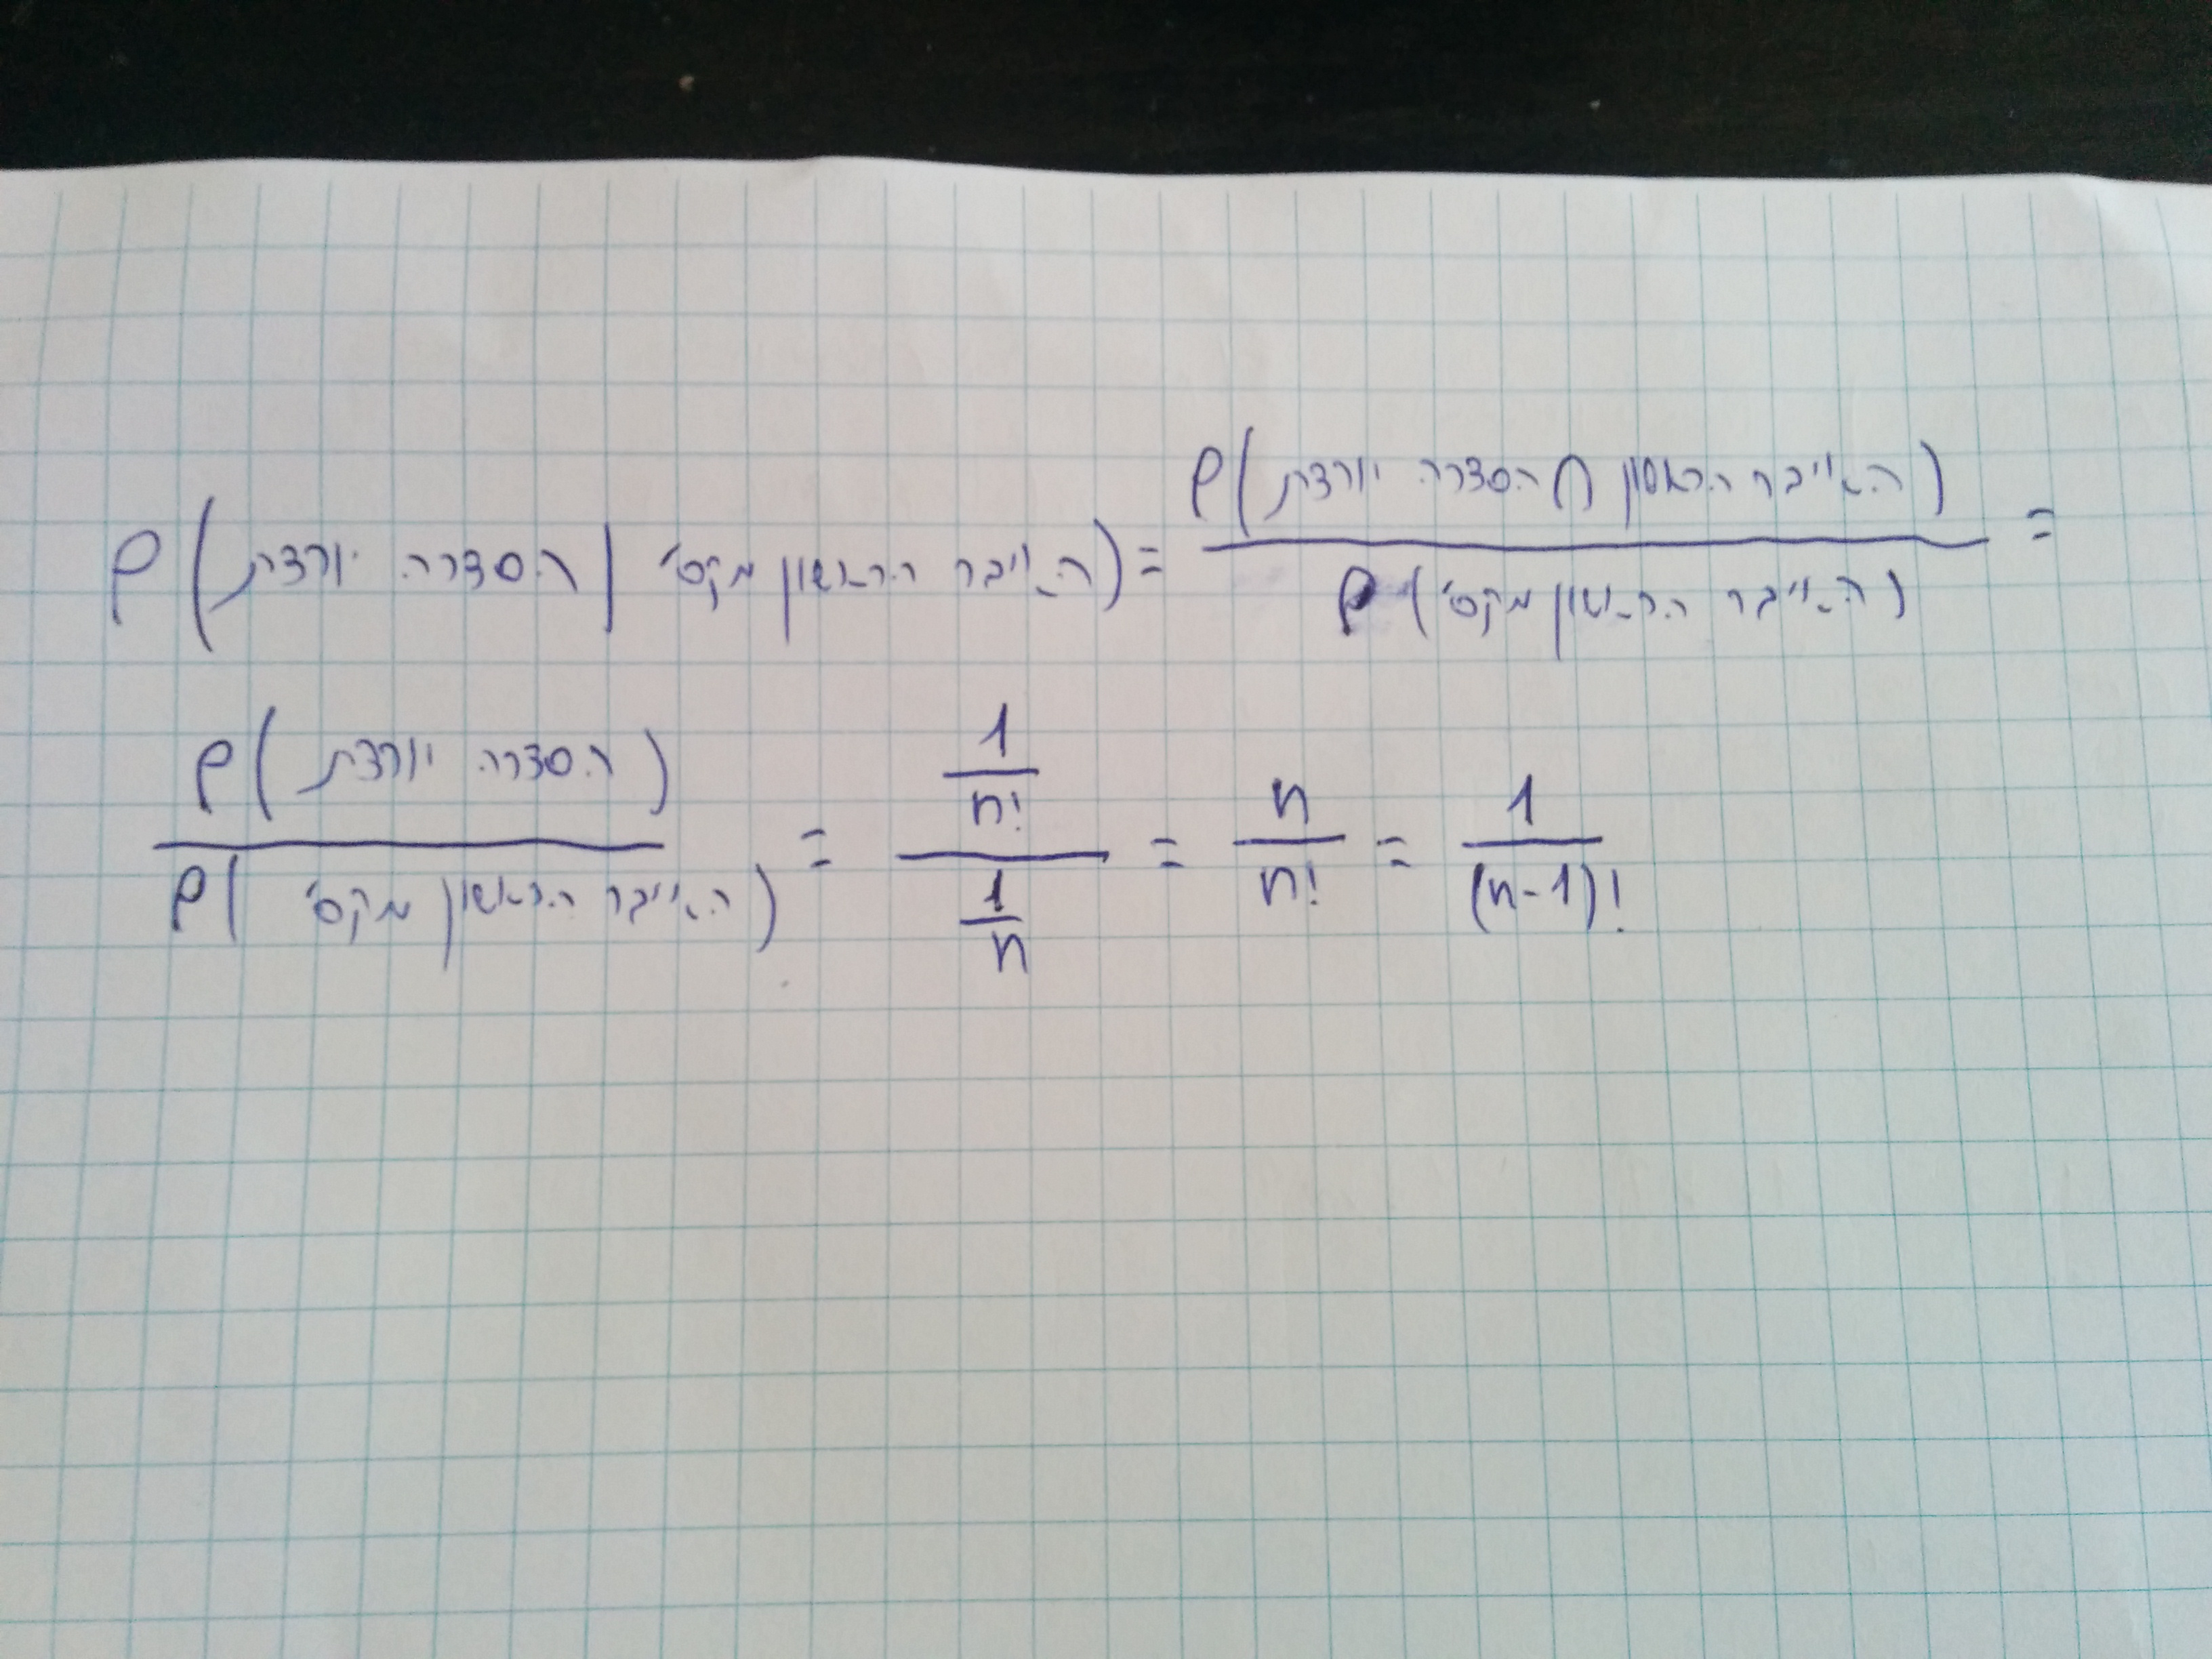 P(הסדרה יורדת | האיבר הראשון מקס') = P(הסדרה יורדת ∩ האיבר הראשון) / P(האיבר הראשון מקס') =
P(הסדרה יורדת) / P(האיבר הראשון מקס') = (1/n!) / (1/n) = n/n! = 1/(n-1)!